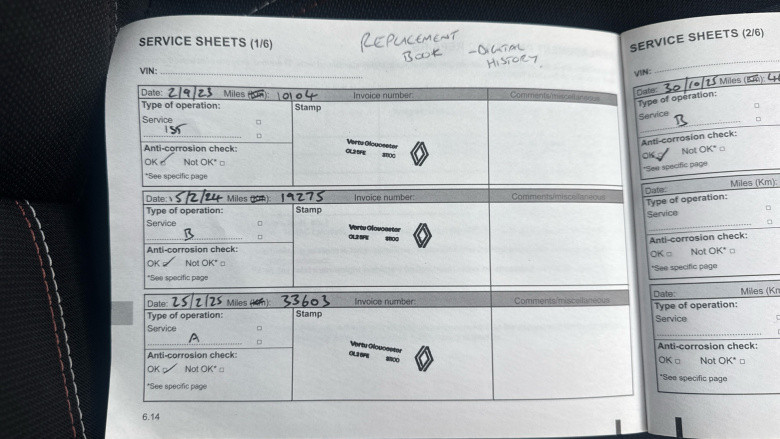 SERVICE SHEETS (1/6)
REPLACEMENT
BOOK - DIGITAL
HISTORY
VIN:
Date: 2/9/23 Miles (Km): 10104 Invoice number: Comments/miscellaneous
Type of operation: Stamp
Service
1ST
Vertu Gloucester
Anti-corrosion check:
OK Not OK*
*See specific page
Date: 15/2/24 Miles (Km): 19275 Invoice number: Comments/miscellaneous
Type of operation: Stamp
Service
B
Vertu Gloucester
Anti-corrosion check:
OK Not OK*
*See specific page
Date: 25/2/25 Miles (Km): 33603 Invoice number: Comments/miscellaneous
Type of operation: Stamp
Service
A
Vertu Gloucester
Anti-corrosion check:
OK Not OK*
*See specific page
6.14
SERVICE SHEETS (2/6)
VIN:
Date: 30/10/25 Miles (Km):
Type of operation:
Service
B
Anti-corrosion check:
OK Not OK*
*See specific page
Date: Miles (Km):
Type of operation:
Service
Anti-corrosion check:
OK Not OK*
*See specific page
Date: Miles
Type of operation:
Service
Anti-corrosion check:
OK Not OK*
*See specific page